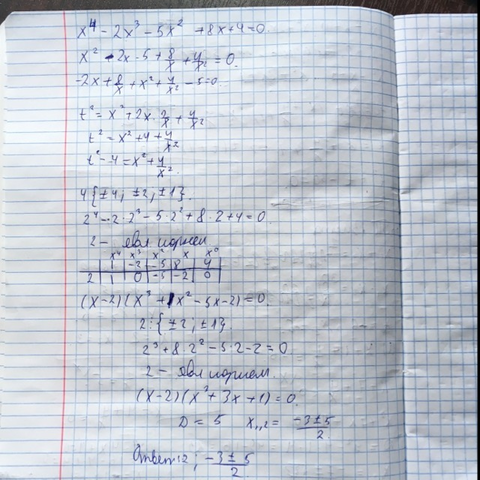 x⁴ - 2x³ - 5x² + 8x + 4 = 0
x² - 2x - 5 + 8/x + 4/x² = 0
-2x + 8/x + x² + 4/x² - 5 = 0
t² = x² + 2x · 2/x + 4/x²
t² = x² + 4 + 4/x²
t² - 4 = x² + 4/x²
4 {±4, ±2, ±1}
2⁴ - 2·2³ - 5·2² + 8·2 + 4 = 0
2 - явл корнем
x⁴ x³ x² x x⁰
1 -2 -5 8 4
2 1 0 -5 -2 0
(x-2)(x³ + 1x² - 5x - 2) = 0
2: {±2, ±1}
2³ + 8·2² - 5·2 - 2 = 0
2 - явл корнем.
(x-2)(x² + 3x + 1) = 0
D = 5 x₁,₂ = (-3 ± 5)/2
Ответ: 2; (-3 ± 5)/2